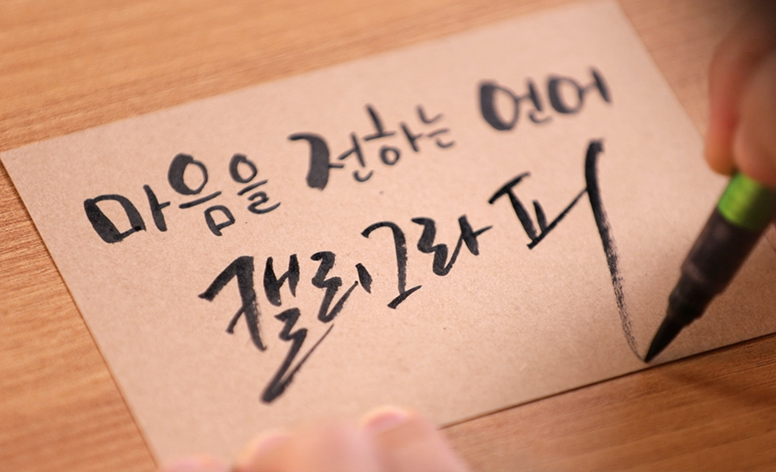 마음을 전하는 언어
캘리그라피